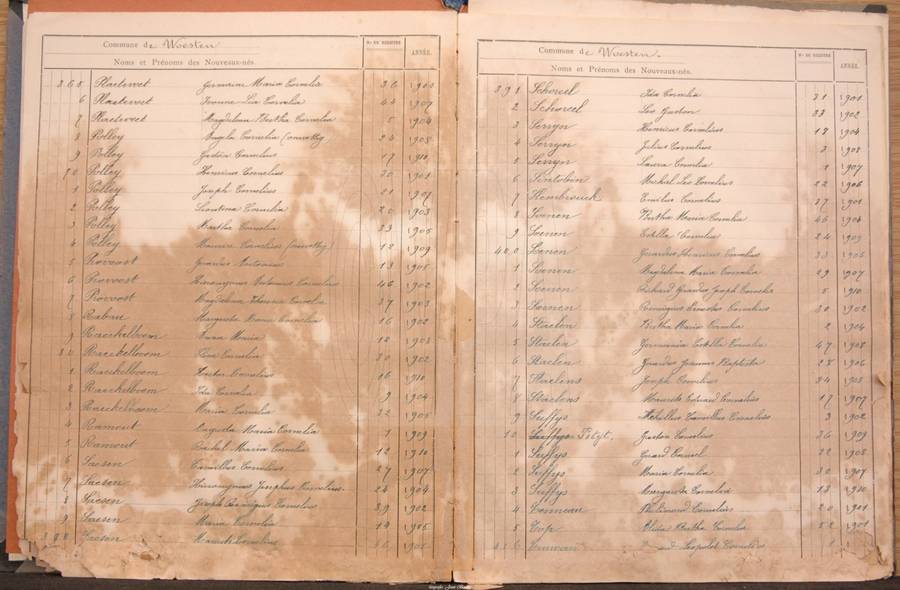 Commune de Woesten
Noms et Prénoms des Nouveaux-nés.
No DU REGISTRE
ANNÉE.
365 Plaetevoet Germaine Maria Cornelia 36 1905
6 Plaetevoet Ivonne Lia Cornelia 44 1907
7 Plaetevoet Magdelena Bertha Cornelia 5 1904
8 Polley Angela Cornelia 24 1908
9 Polley Gaston Cornelius 17 1910
70 Polley Henricus Cornelius 20 1901
1 Polley Joseph Cornelius 21 1907
2 Polley Leontina Cornelia 20 1903
3 Polley Martha Cornelia 23 1905
4 Polley Maurice Cornelius 18 1909
5 Provoost Gerardus Antonius 13 1905
6 Provoost Hieronymus Antonius Cornelius 46 1902
7 Provost Magdelena Cornelia 37 1903
8 Augusta Maria Cornelia 16 1902
9 Raeckelboom Anna Maria 12 1903
80 Raeckelboom Cornelia 30 1902
1 Raeckelboom Hector Cornelius 16 1910
2 Raeckelboom Ida Cornelia 9 1904
3 Raeckelboom Maria Cornelia 22 1905
4 Ramout Augusta Maria Cornelia 1 1909
5 Ramout Rachel Maria Cornelia 12 1910
6 Saesen Camillus Cornelius 27 1907
7 Saesen Hieronymus Josephus Cornelius 24 1904
8 Saesen Joseph Cornelius 39 1902
9 Saesen Maria Cornelia 14 1905
Saesen Cornelius
Commune de Woesten.
Noms et Prénoms des Nouveaux-nés.
No DU REGISTRE
ANNÉE.
391 Schoreel Ida Cornelia 31 1901
2 Schoreel Leo Gaston 33 1902
3 Serryn Henricus Cornelius 18 1904
4 Serryn Julius Cornelius 3 1908
5 Serryn Laura Cornelia 1 1907
6 Sintobin Michiel Leo Cornelius 12 1906
7 Slembrouck Emilius Cornelius 27 1901
8 Soenen Bertha Maria Cornelia 46 1904
9 Soenen Estella Cornelia 24 1909
400 Soenen Gerardus Henricus Cornelius 33 1905
1 Soenen Magdelena Maria Cornelia 29 1907
2 Soenen Richard Gerardus Joseph Cornelius 5 1910
3 Soenen Remigius Ernestus Cornelius 30 1902
4 Staelen Bertha Maria Cornelia 2 1904
5 Staelen Germania Estella Cornelia 47 1908
6 Staelen Gerardus Joannes Baptista 28 1906
7 Staelens Joseph Cornelius 24 1905
8 Staelens Maurits Eduard Cornelius 17 1907
9 Suffys Achilles Camillus Cornelius 3 1902
10 Suffys Gaston Cornelius 36 1909
1 Suffys Gerard Camiel 22 1905
2 Suffys Maria Cornelia 30 1907
3 Suffys Margareta Cornelia 13 1910
4 Ferdinand Cornelius 20 1901
5 Bertha Cornelia 52 1901
416 Leopold Cornelius